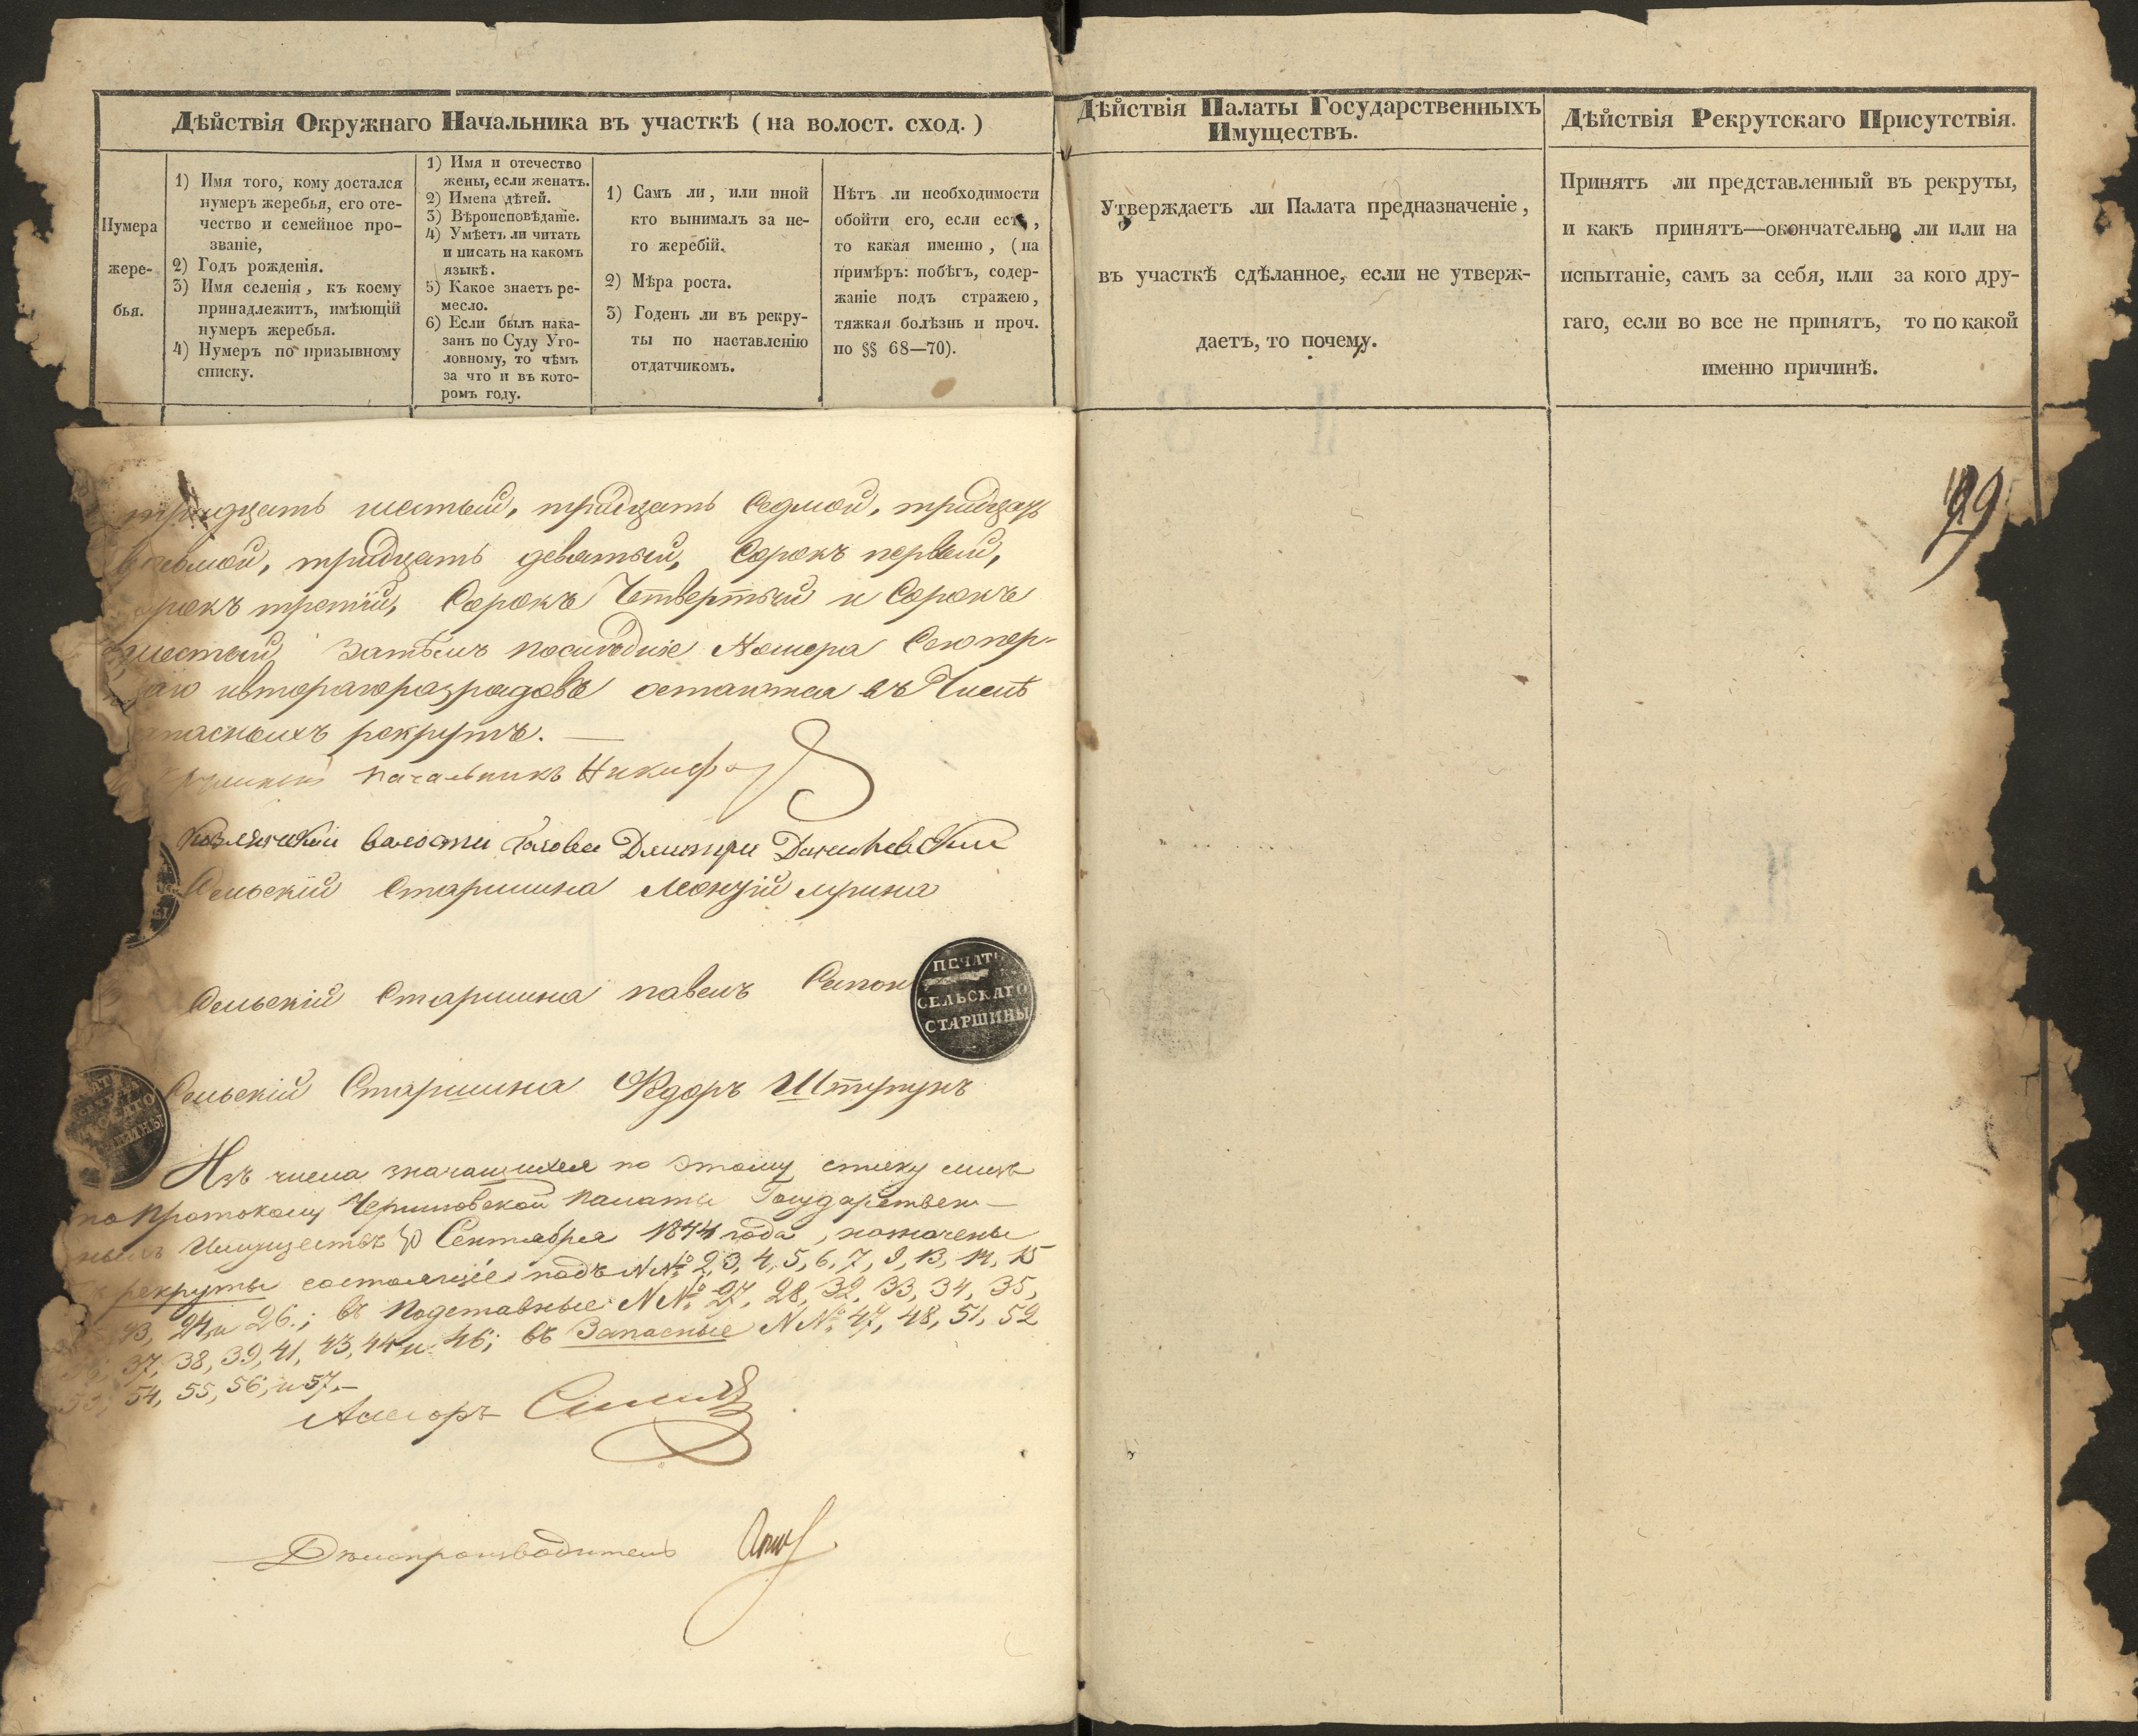 Дѣйствія Окружнаго Начальника въ участкѣ (на волост. сход.)
Нумера
жере-
бья.
1) Имя того, кому достался
нумеръ жеребья, его оте-
чество и семейное про-
званіе,
2) Годъ рожденія.
3) Имя селенія, къ коему
принадлежитъ, имѣющій
нумеръ жеребья.
4) Нумеръ по призывному
списку.
1) Имя и отечество
жены, если женатъ.
2) Имена дѣтей.
3) Вѣроисповѣданіе.
4) Умѣетъ ли читать
и писать на какомъ
языкѣ.
5) Какое знаетъ ре-
месло.
6) Если былъ нака-
занъ по Суду Уго-
ловному, то чѣмъ
за что и въ кото-
ромъ году.
1) Самъ ли, или иной
кто вынималъ за не-
го жеребій.
2) Мѣра роста.
3) Годенъ ли въ рекру-
ты по наставленію
отдатчикомъ.
Нѣтъ ли необходимости
обойти его, если есть,
то какая именно, (на
примѣръ: побѣгъ, содер-
жаніе подъ стражею,
тяжкая болѣзнь и проч.
по §§ 68—70).
Дѣйствія Палаты Государственныхъ
Имуществъ.
Утверждаетъ ли Палата предназначеніе,
въ участкѣ сдѣланное, если не утверж-
даетъ, то почему.
Дѣйствія Рекрутскаго Присутствія.
Принятъ ли представленный въ рекруты,
и какъ принятъ—окончательно ли или на
испытаніе, самъ за себя, или за кого дру-
гаго, если во все не принятъ, то по какой
именно причинѣ.
тридцать шестый, тридцать седмой, тридцать
восьмой, тридцать девятый, Сорокъ первый,
орокъ третій, Сорокъ Четвертый и Сорокъ
шестый затѣмъ послѣдніе Номера
ивтораго разрядовъ остаются въ Числѣ
апасныхъ рекрутъ. —
Начальникъ
волости Голова Дмитри
Сельскій Старшина
Сельскій Старшина павелъ
ПЕЧАТЬ
СЕЛЬСКАГО
СТАРШИНЫ
Сельскій Старшина Ѳедоръ Штупунъ
Изъ числа значащихся по этому списку лицъ
по Протоколу Черниговской палаты Государствен-
ныхъ Имуществъ 30 Сентября 1844 года, назначены
рекруты состоящіе подъ N№ 2, 3, 4, 5, 6, 7, 9, 13, 14, 15
23, 24 и 26.; въ Подставные N№ 27, 28, 32, 33, 34, 35,
36, 37, 38, 39, 41, 43, 44 и 46; въ Запасные N№ 47, 48, 51, 52
53, 54, 55, 56, и 57.—
Асесоръ
Дѣлопроизводитель